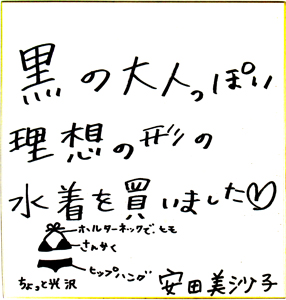 黒の大人っぽい
理想の形の
水着を買いました♡
ホルターネックで、ヒモ
さんかく
ヒップハング
ちょっと光沢
安田美沙子